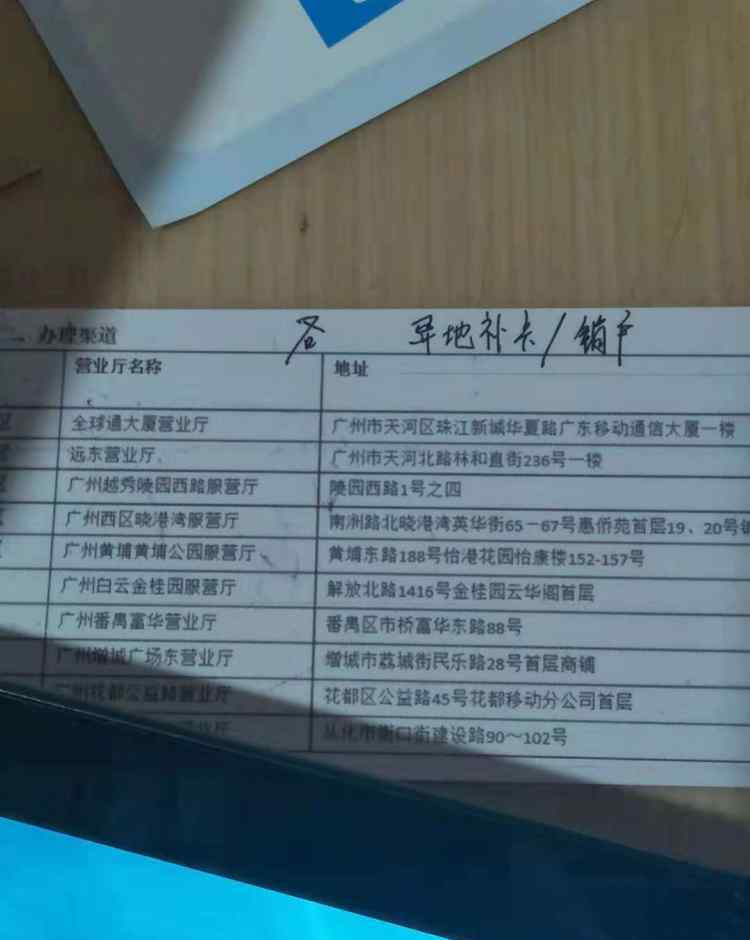 办理渠道 异地补卡/销户
营业厅名称 地址
全球通大厦营业厅 广州市天河区珠江新城华夏路广东移动通信大厦一楼
远东营业厅 广州市天河北路林和直街236号一楼
广州越秀陵园西路服营厅 陵园西路1号之四
广州西区晓港湾服营厅 南洲路北晓港湾英华街65-67号惠侨苑首层19、20号
广州黄埔黄埔公园服营厅 黄埔东路188号怡港花园怡康楼152-157号
广州白云金桂园服营厅 解放北路1416号金桂园云华阁首层
广州番禺富华营业厅 番禺区市桥富华东路88号
广州增城广场东营业厅 增城市荔城街民乐路28号首层商铺
广州花都公益路营业厅 花都区公益路45号花都移动分公司首层
从化市街口街建设路90~102号